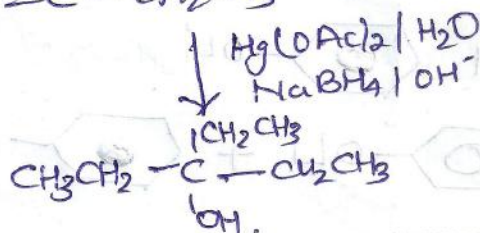 Hg(OAc)2 | H2O
NaBH4 | OH-
CH2CH3
CH3CH2 - C - CH2CH3
OH.